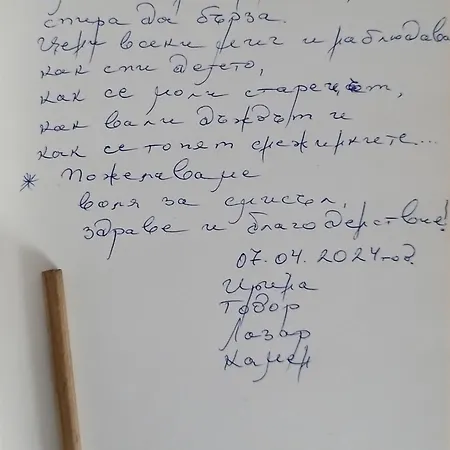 спира да бърза.
Цени всеки миг и наблюдава
как спи детето,
как се моли старецът,
как вали дъждът и
как се топят снежинките...
* Пожелаваме
воля за смисъл,
здраве и благоденствие!
07.04.2024 год.
Ирина
Тодор
Лазар
Камен